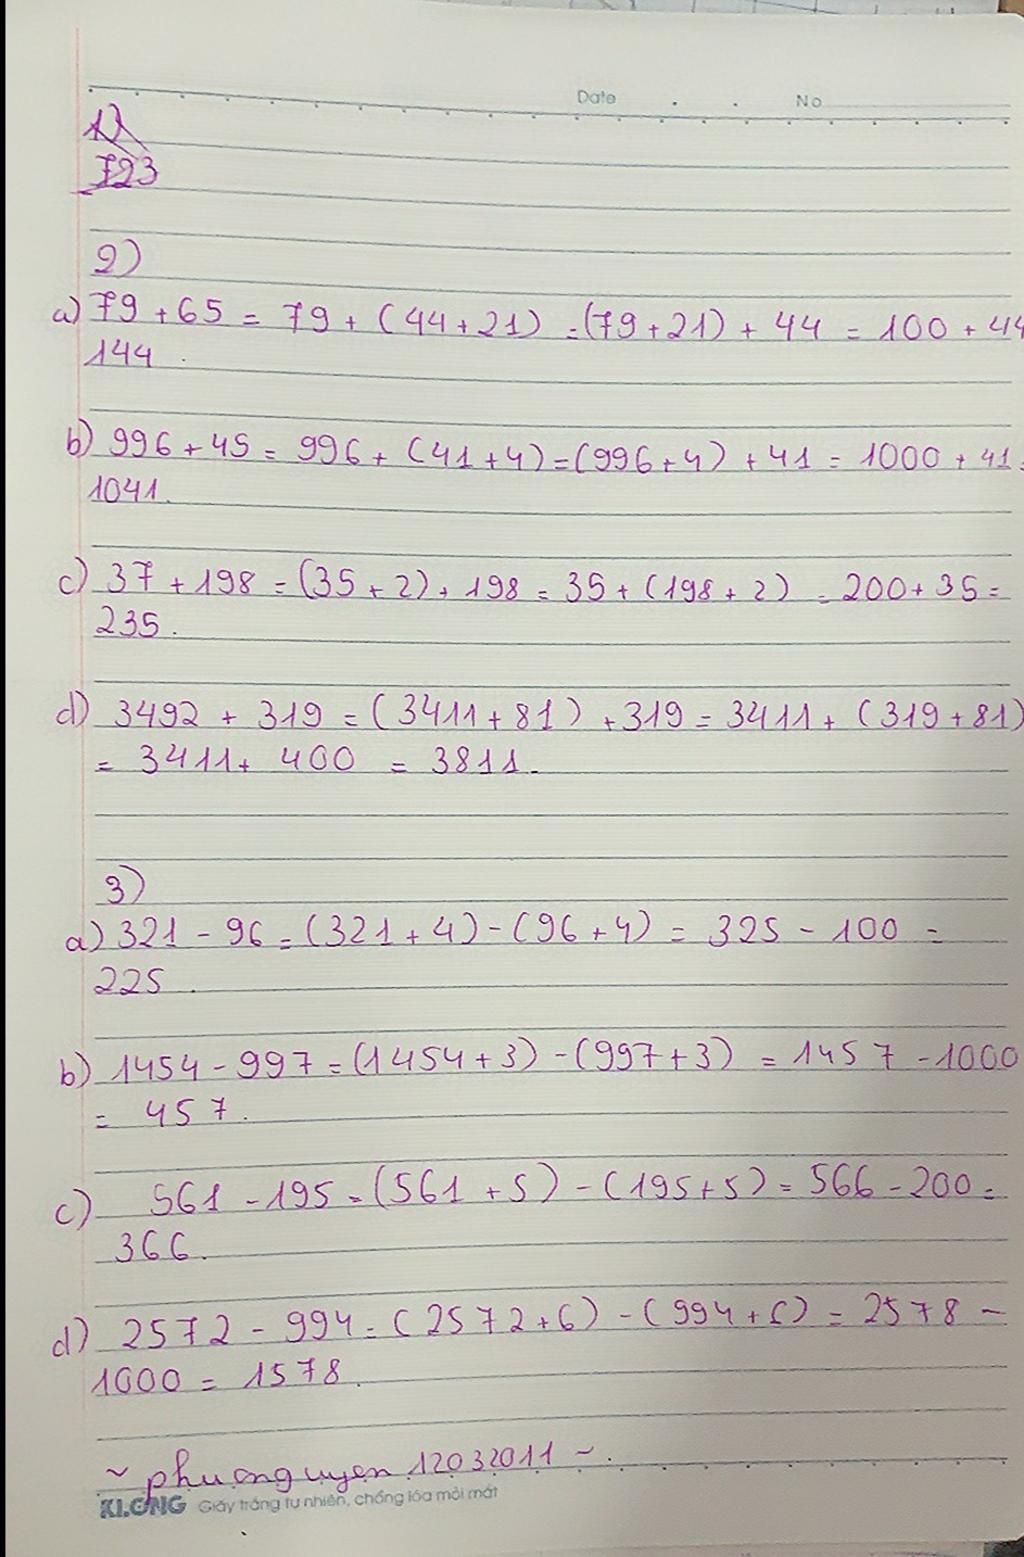 Date No
1)
723
2)
a) 79 + 65 = 79 + (44 + 21) = (79 + 21) + 44 = 100 + 44
144.
b) 996 + 45 = 996 + (41 + 4) = (996 + 4) + 41 = 1000 + 41 =
1041.
c) 37 + 198 = (35 + 2) + 198 = 35 + (198 + 2) = 200 + 35 =
235.
d) 3492 + 319 = (3411 + 81) + 319 = 3411 + (319 + 81)
= 3411 + 400 = 3811.
3)
a) 321 - 96 = (321 + 4) - (96 + 4) = 325 - 100 =
225.
b) 1454 - 997 = (1454 + 3) - (997 + 3) = 1457 - 1000
= 457.
c) 561 - 195 = (561 + 5) - (195 + 5) = 566 - 200 =
366.
d) 2572 - 994 = (2572 + 6) - (994 + 6) = 2578 -
1000 = 1578.
~ phuonguyen 12032011 ~.
KLONG Giấy trắng tự nhiên, chống lóa mỏi mắt